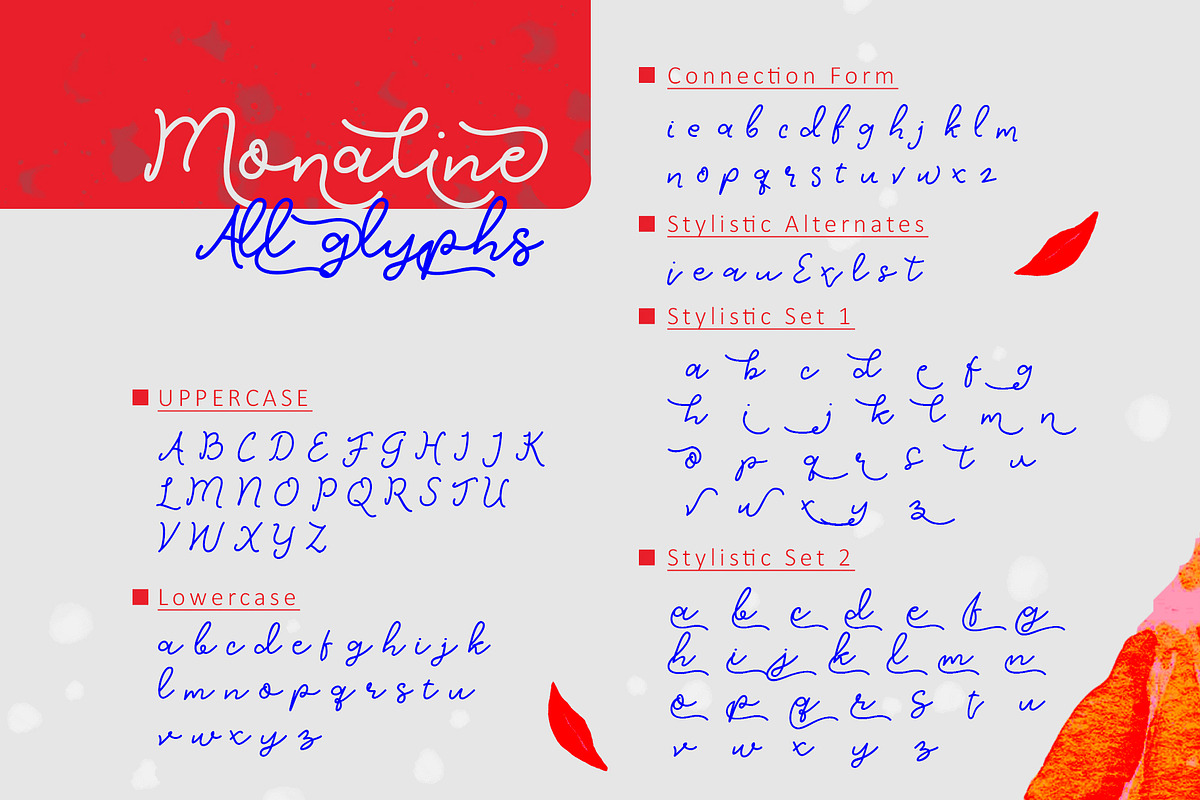 Monaline
All glyphs
UPPERCASE
A B C D E F G H I J K
L M N O P Q R S T U
V W X Y Z
Lowercase
a b c d e f g h i j k
l m n o p q r s t u
v w x y z
Connection Form
i e a b c d f g h j k l m
n o p q r s t u v w x z
Stylistic Alternates
i e a u E x l s t
Stylistic Set 1
a b c d e f g
h i j k l m n
o p q r s t u
v w x y z
Stylistic Set 2
a b c d e f g
h i j k l m n
o p q r s t u
v w x y z